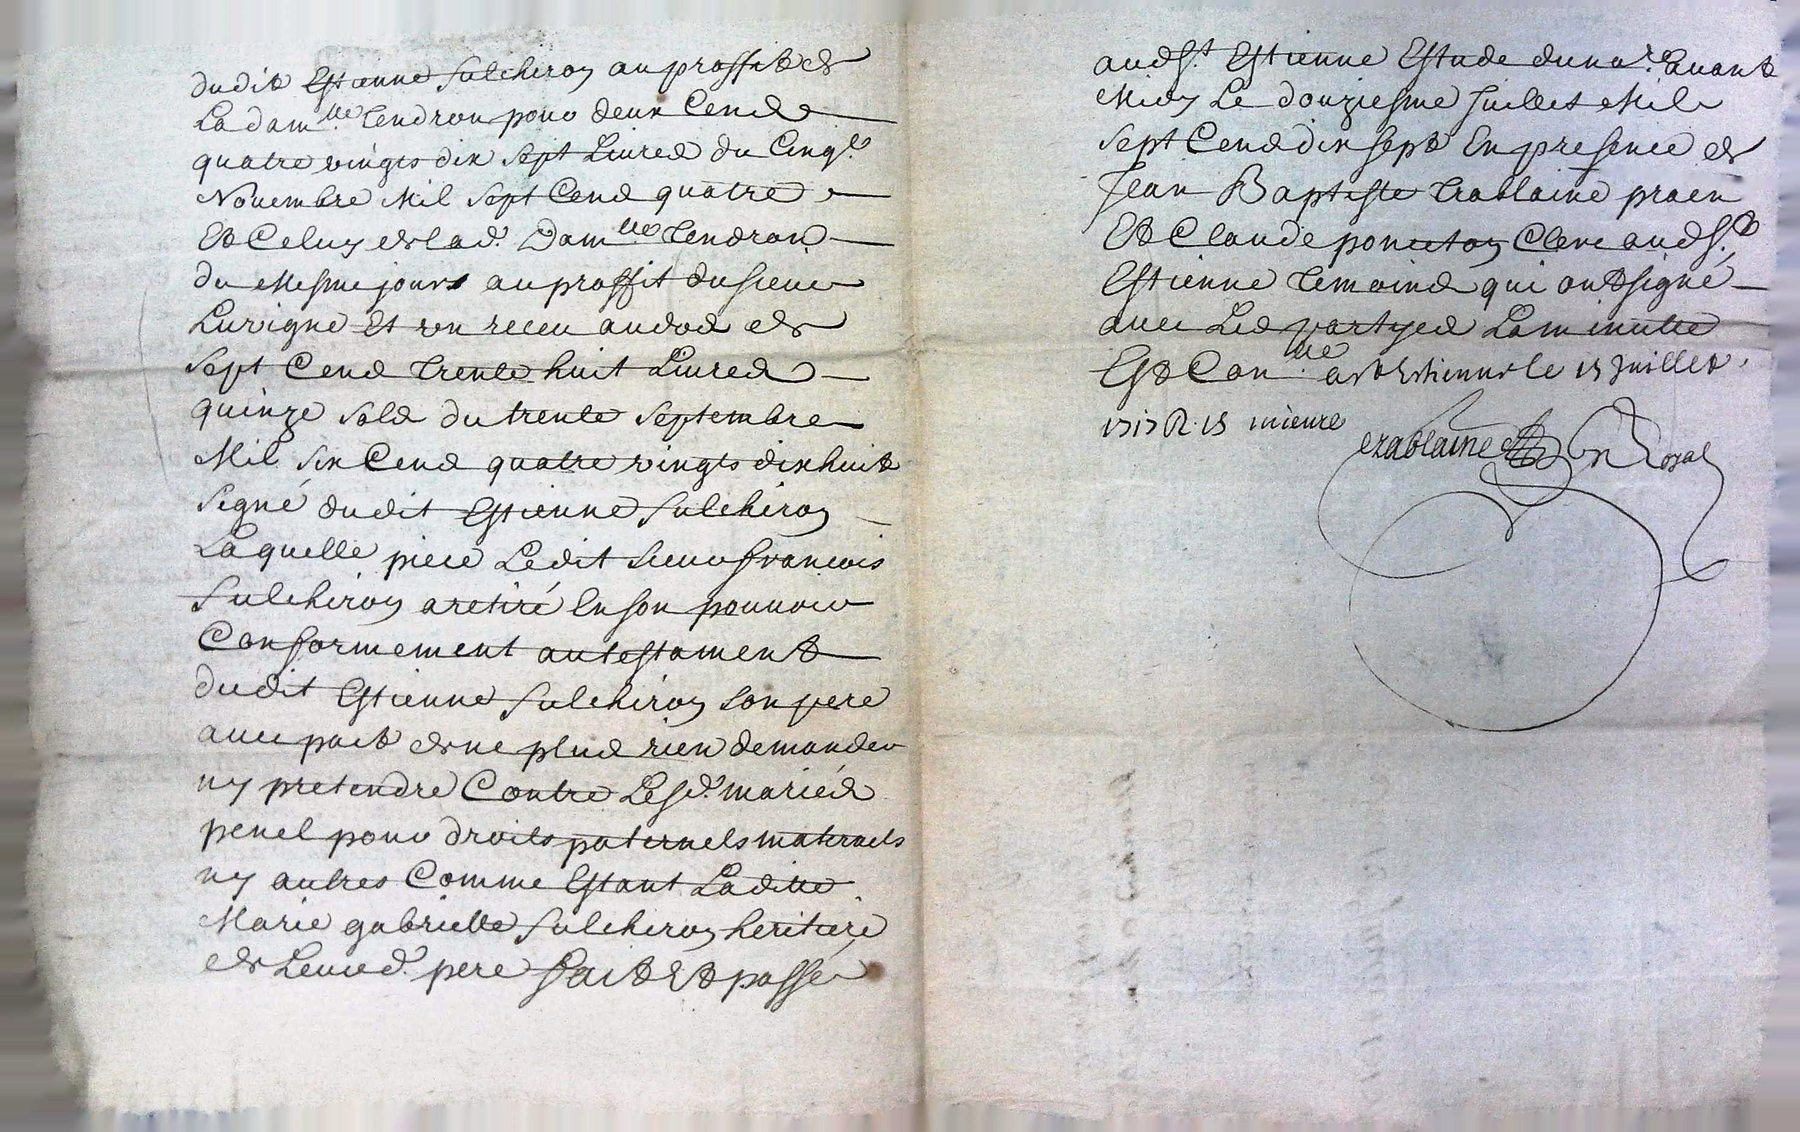 dudit Estienne fulchiron au proffit de
La dam.lle Tendron pour deux Cend
quatre vingts dix sept Livres du Cinq.e
Novembre Mil sept Cens quatre
Et Celuy de lad.e Dam.lle Tendron
du Mesme jours au proffit du sieur
Luvigne Et un receu au dos de
sept Cens trente huit Livres
quinze sols du trente septembre
Mil six Cens quatre vingts dixhuit
signé dudit Estienne fulchiron
Laquelle piece Ledit sieur françois
fulchiron a retiré En son pouvoir
Conformement au testament
dudit Estienne fulchiron son pere
avec pact de ne plus rien demander
ny pretendre Contre Lesd.s mariés
penel pour droits paternels maternels
ny autres Comme Estant Laditte
Marie gabrielle fulchiron heritiere
de Leurd. pere fait Et passé
aud St Estienne Estude du no.re avant
Midy Le douziesme Juillet Mil
sept Cens dix sept En presence de
Jean Baptiste Trablaine praen
Et Claude ponceton Clerc aud St
Estienne Temoins qui ont signé
avec Les partyes La minutte
Est Con.llée a st Estienne le 15 Juillet
1717 R. 15
Royal